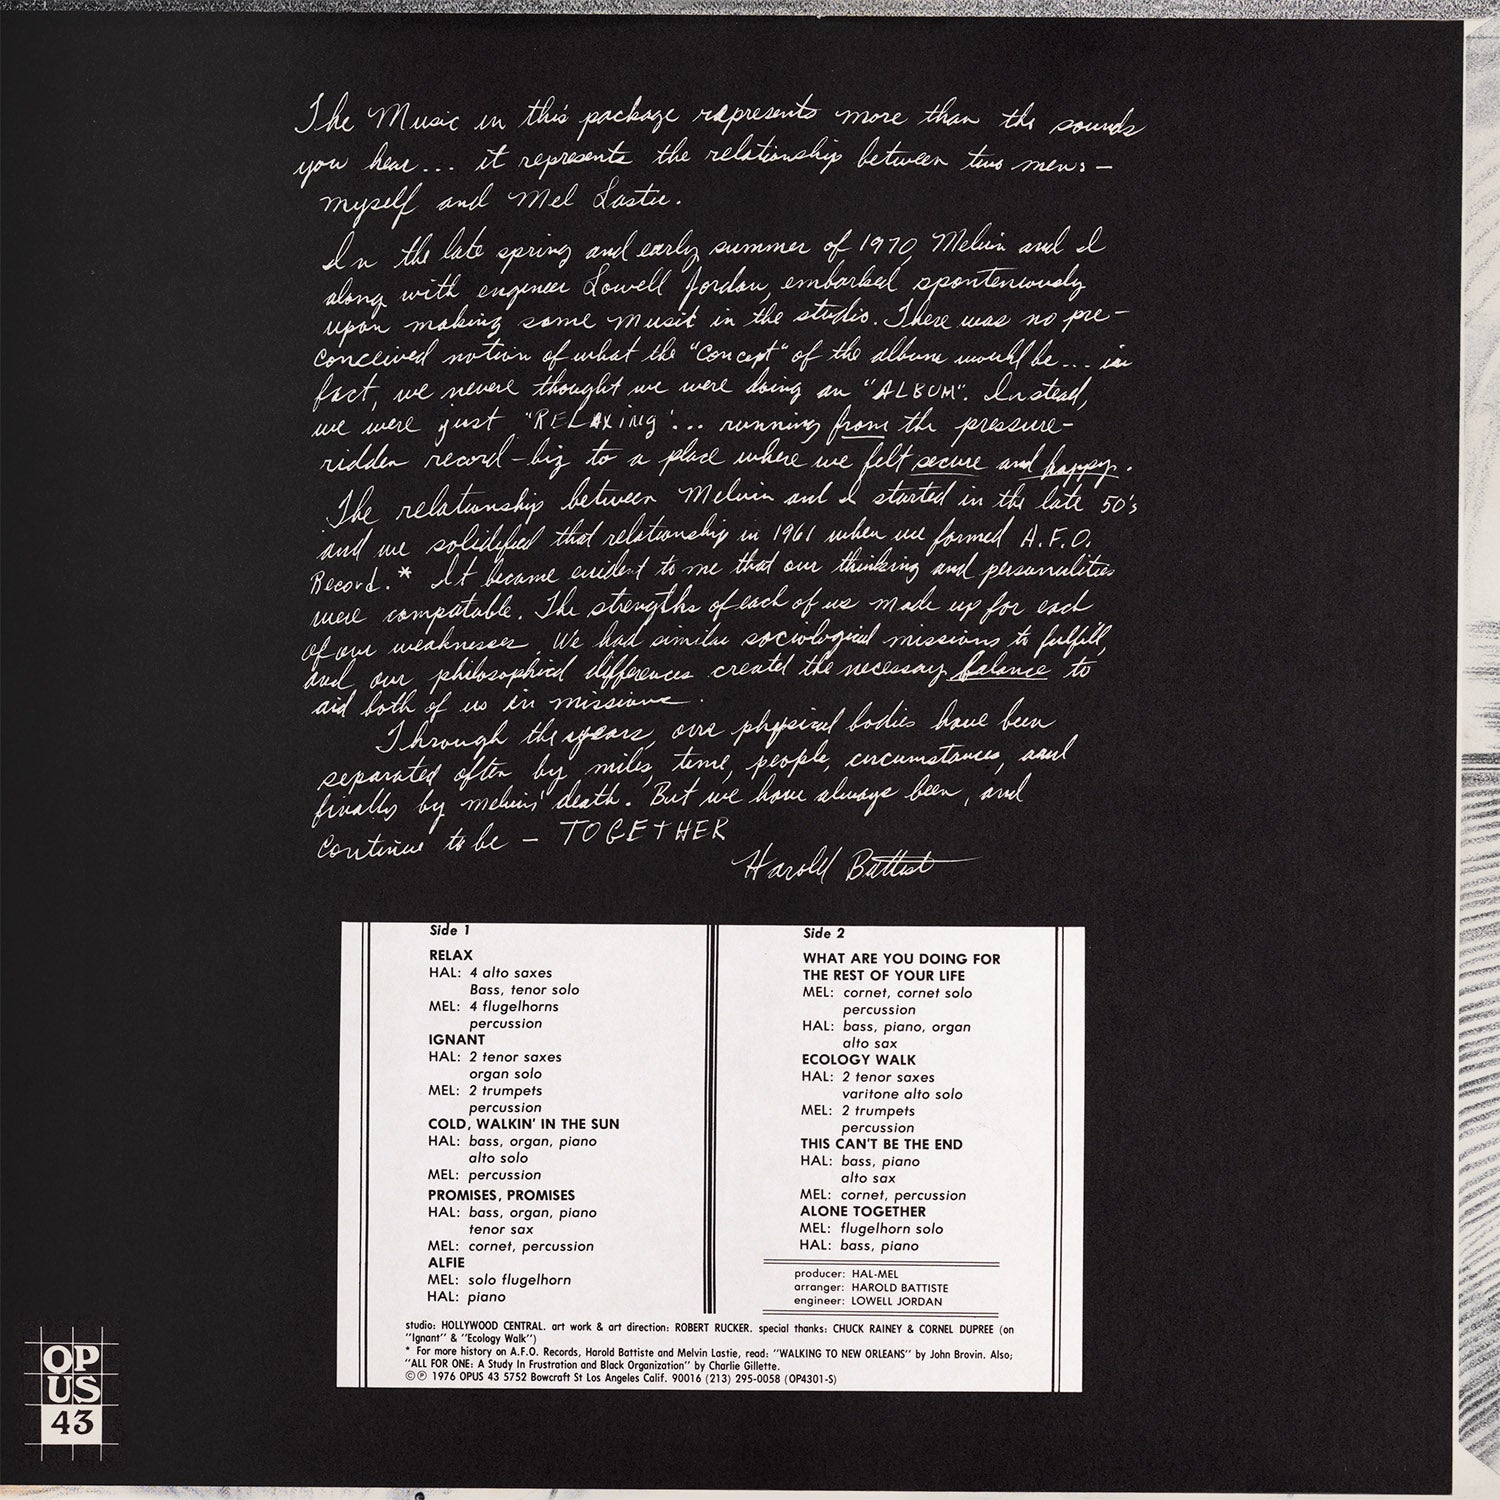 The Music in this package represents more than the sounds
you hear... it represents the relationship between two men: -
myself and Mel Lastie.
In the late spring and early summer of 1970, Melvin and I
along with engineer Lowell Jordan, embarked sponteniously
upon making some music in the studio. There was no pre-
conceived notion of what the "Concept" of the album would be... in
fact, we never thought we were doing an "ALBUM". Instead,
we were just "RELAXING"... running from the pressure-
ridden record-biz to a place where we felt secure and happy.
The relationship between Melvin and I started in the late 50's
and we solidified that relationship in 1961 when we formed A.F.O.
Record.* It became evident to me that our thinking and personalities
were compatable. The strengths of each of us made up for each
of our weaknesses. We had similar sociological missions to fulfill,
and our philosophical differences created the necessary balance to
aid both of us in missions.
Through the years, our physical bodies have been
separated often by miles, time, people, circumstances, and
finally by Melvins' death. But we have always been, and
Continue to be - TOGETHER
Harold Battiste
Side 1
RELAX
HAL: 4 alto saxes
Bass, tenor solo
MEL: 4 flugelhorns
percussion
IGNANT
HAL: 2 tenor saxes
organ solo
MEL: 2 trumpets
percussion
COLD, WALKIN' IN THE SUN
HAL: bass, organ, piano
alto solo
MEL: percussion
PROMISES, PROMISES
HAL: bass, organ, piano
tenor sax
MEL: cornet, percussion
ALFIE
MEL: solo flugelhorn
HAL: piano
Side 2
WHAT ARE YOU DOING FOR
THE REST OF YOUR LIFE
MEL: cornet, cornet solo
percussion
HAL: bass, piano, organ
alto sax
ECOLOGY WALK
HAL: 2 tenor saxes
varitone alto solo
MEL: 2 trumpets
percussion
THIS CAN'T BE THE END
HAL: bass, piano
alto sax
MEL: cornet, percussion
ALONE TOGETHER
MEL: flugelhorn solo
HAL: bass, piano
producer: HAL-MEL
arranger: HAROLD BATTISTE
engineer: LOWELL JORDAN
studio: HOLLYWOOD CENTRAL. art work & art direction: ROBERT RUCKER. special thanks: CHUCK RAINEY & CORNEL DUPREE (on
"Ignant" & "Ecology Walk")
* For more history on A.F.O. Records, Harold Battiste and Melvin Lastie, read: "WALKING TO NEW ORLEANS" by John Brovin. Also;
"ALL FOR ONE: A Study In Frustration and Black Organization" by Charlie Gillette.
©℗ 1976 OPUS 43 5752 Bowcraft St Los Angeles Calif. 90016 (213) 295-0058 (OP4301-S)
OP
US
43